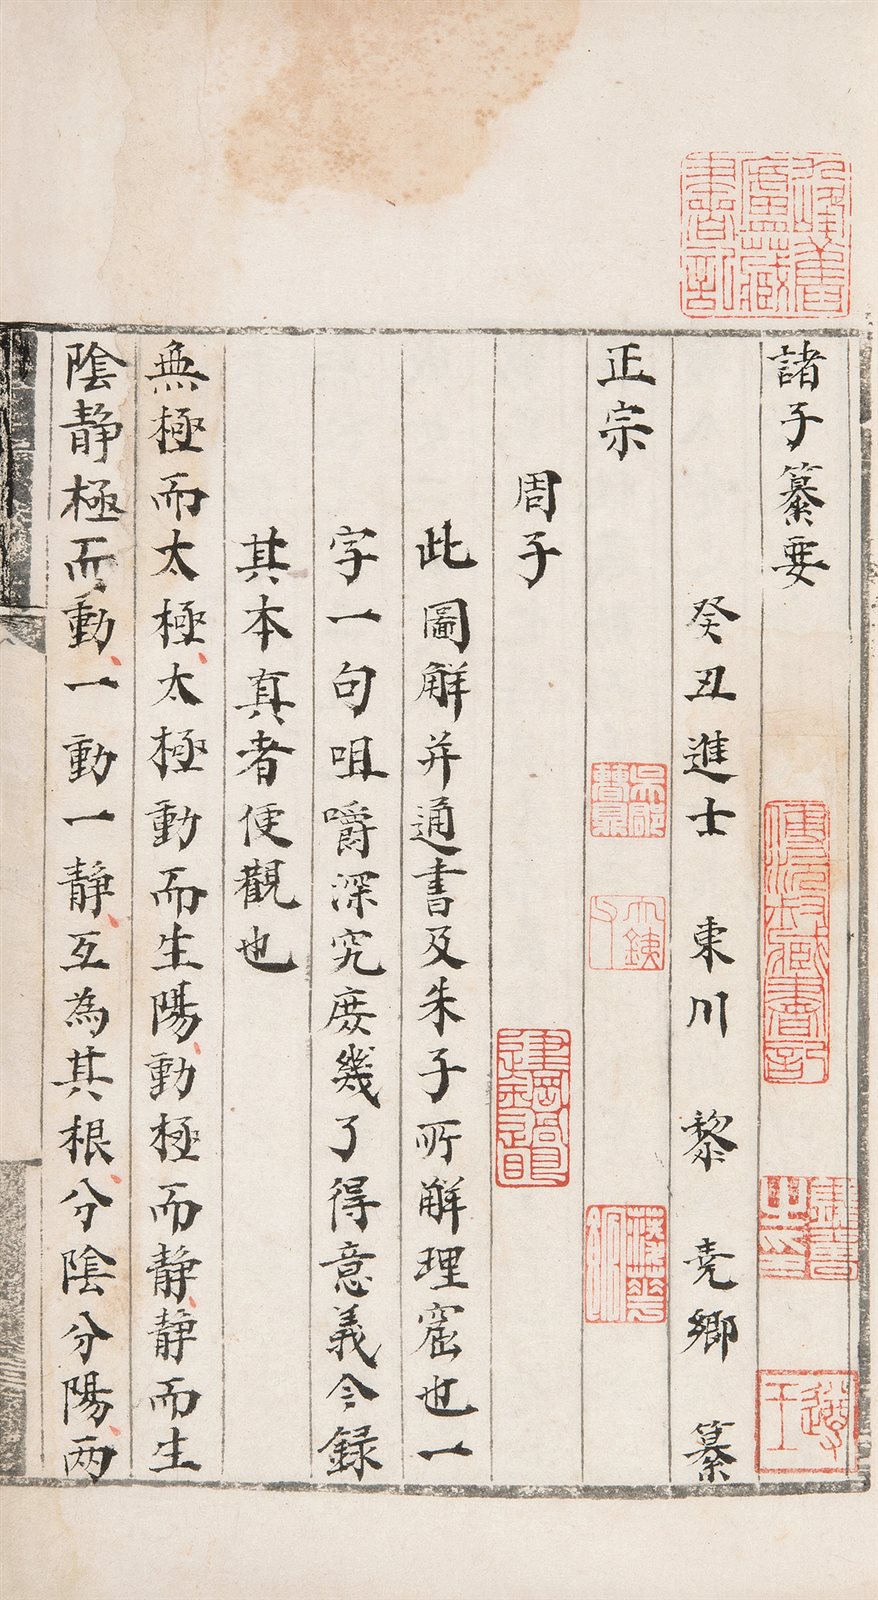 諸子纂要
癸丑進士 東川 黎堯卿 纂
正宗
周子
此圖解并通書及朱子所解理窟也一
字一句咀嚼深究庶幾了得意義今録
其本真者便觀也
無極而太極太極動而生陽動極而静静而生
陰静極而動一動一静互為其根分陰分陽兩